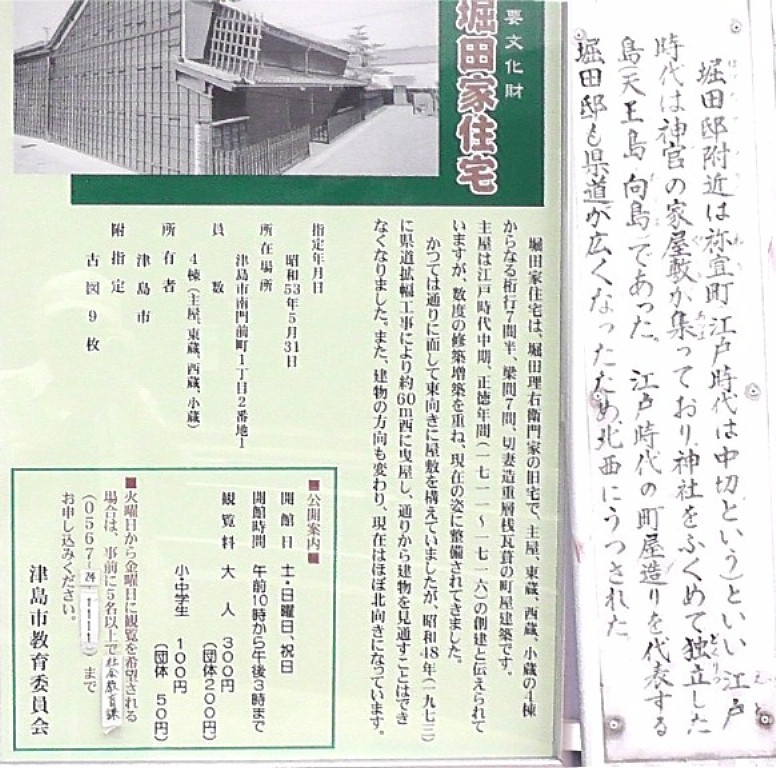 堀田邸附近は祢宜町江戸時代は中切という)といい江戸
時代は神官の家屋敷が集っており神社をふくめて独立した
島天王島向島であった。江戸時代の町屋造りを代表する
堀田邸も県道が広くなったため北西にうつされた
要文化財
堀田家住宅
堀田家住宅は、堀田理右衛門家の旧宅で、主屋、東蔵、西蔵、小蔵の4棟
からなる桁行7間半、梁間7間、切妻造重層桟瓦葺の町屋建築です。
主屋は江戸時代中期、正徳年間(一七一一~一七一六)の創建と伝えられて
いますが、数度の修築増築を重ね、現在の姿に整備されてきました。
かつては通りに面して東向きに屋敷を構えていましたが、昭和48年(一九七三)
に県道拡幅工事により約60m西に曳屋し、通りから建物を見通すことはでき
なくなりました。また、建物の方向も変わり、現在はほぼ北向きになっています。
指定年月日
昭和53年5月31日
所在場所
津島市南門前町1丁目2番地1
員数
4棟(主屋、東蔵、西蔵、小蔵)
所有者
津島市
附指定
古図9枚
■公開案内■
開館日 土・日曜日、祝日
開館時間 午前10時から午後3時まで
観覧料 大人 300円
(団体200円)
小・中学生 100円
(団体 50円)
■火曜日から金曜日に観覧を希望される
場合は、事前に5名以上で社会教育課
(0567-24-1111)まで
お申し込みください。
津島市教育委員会